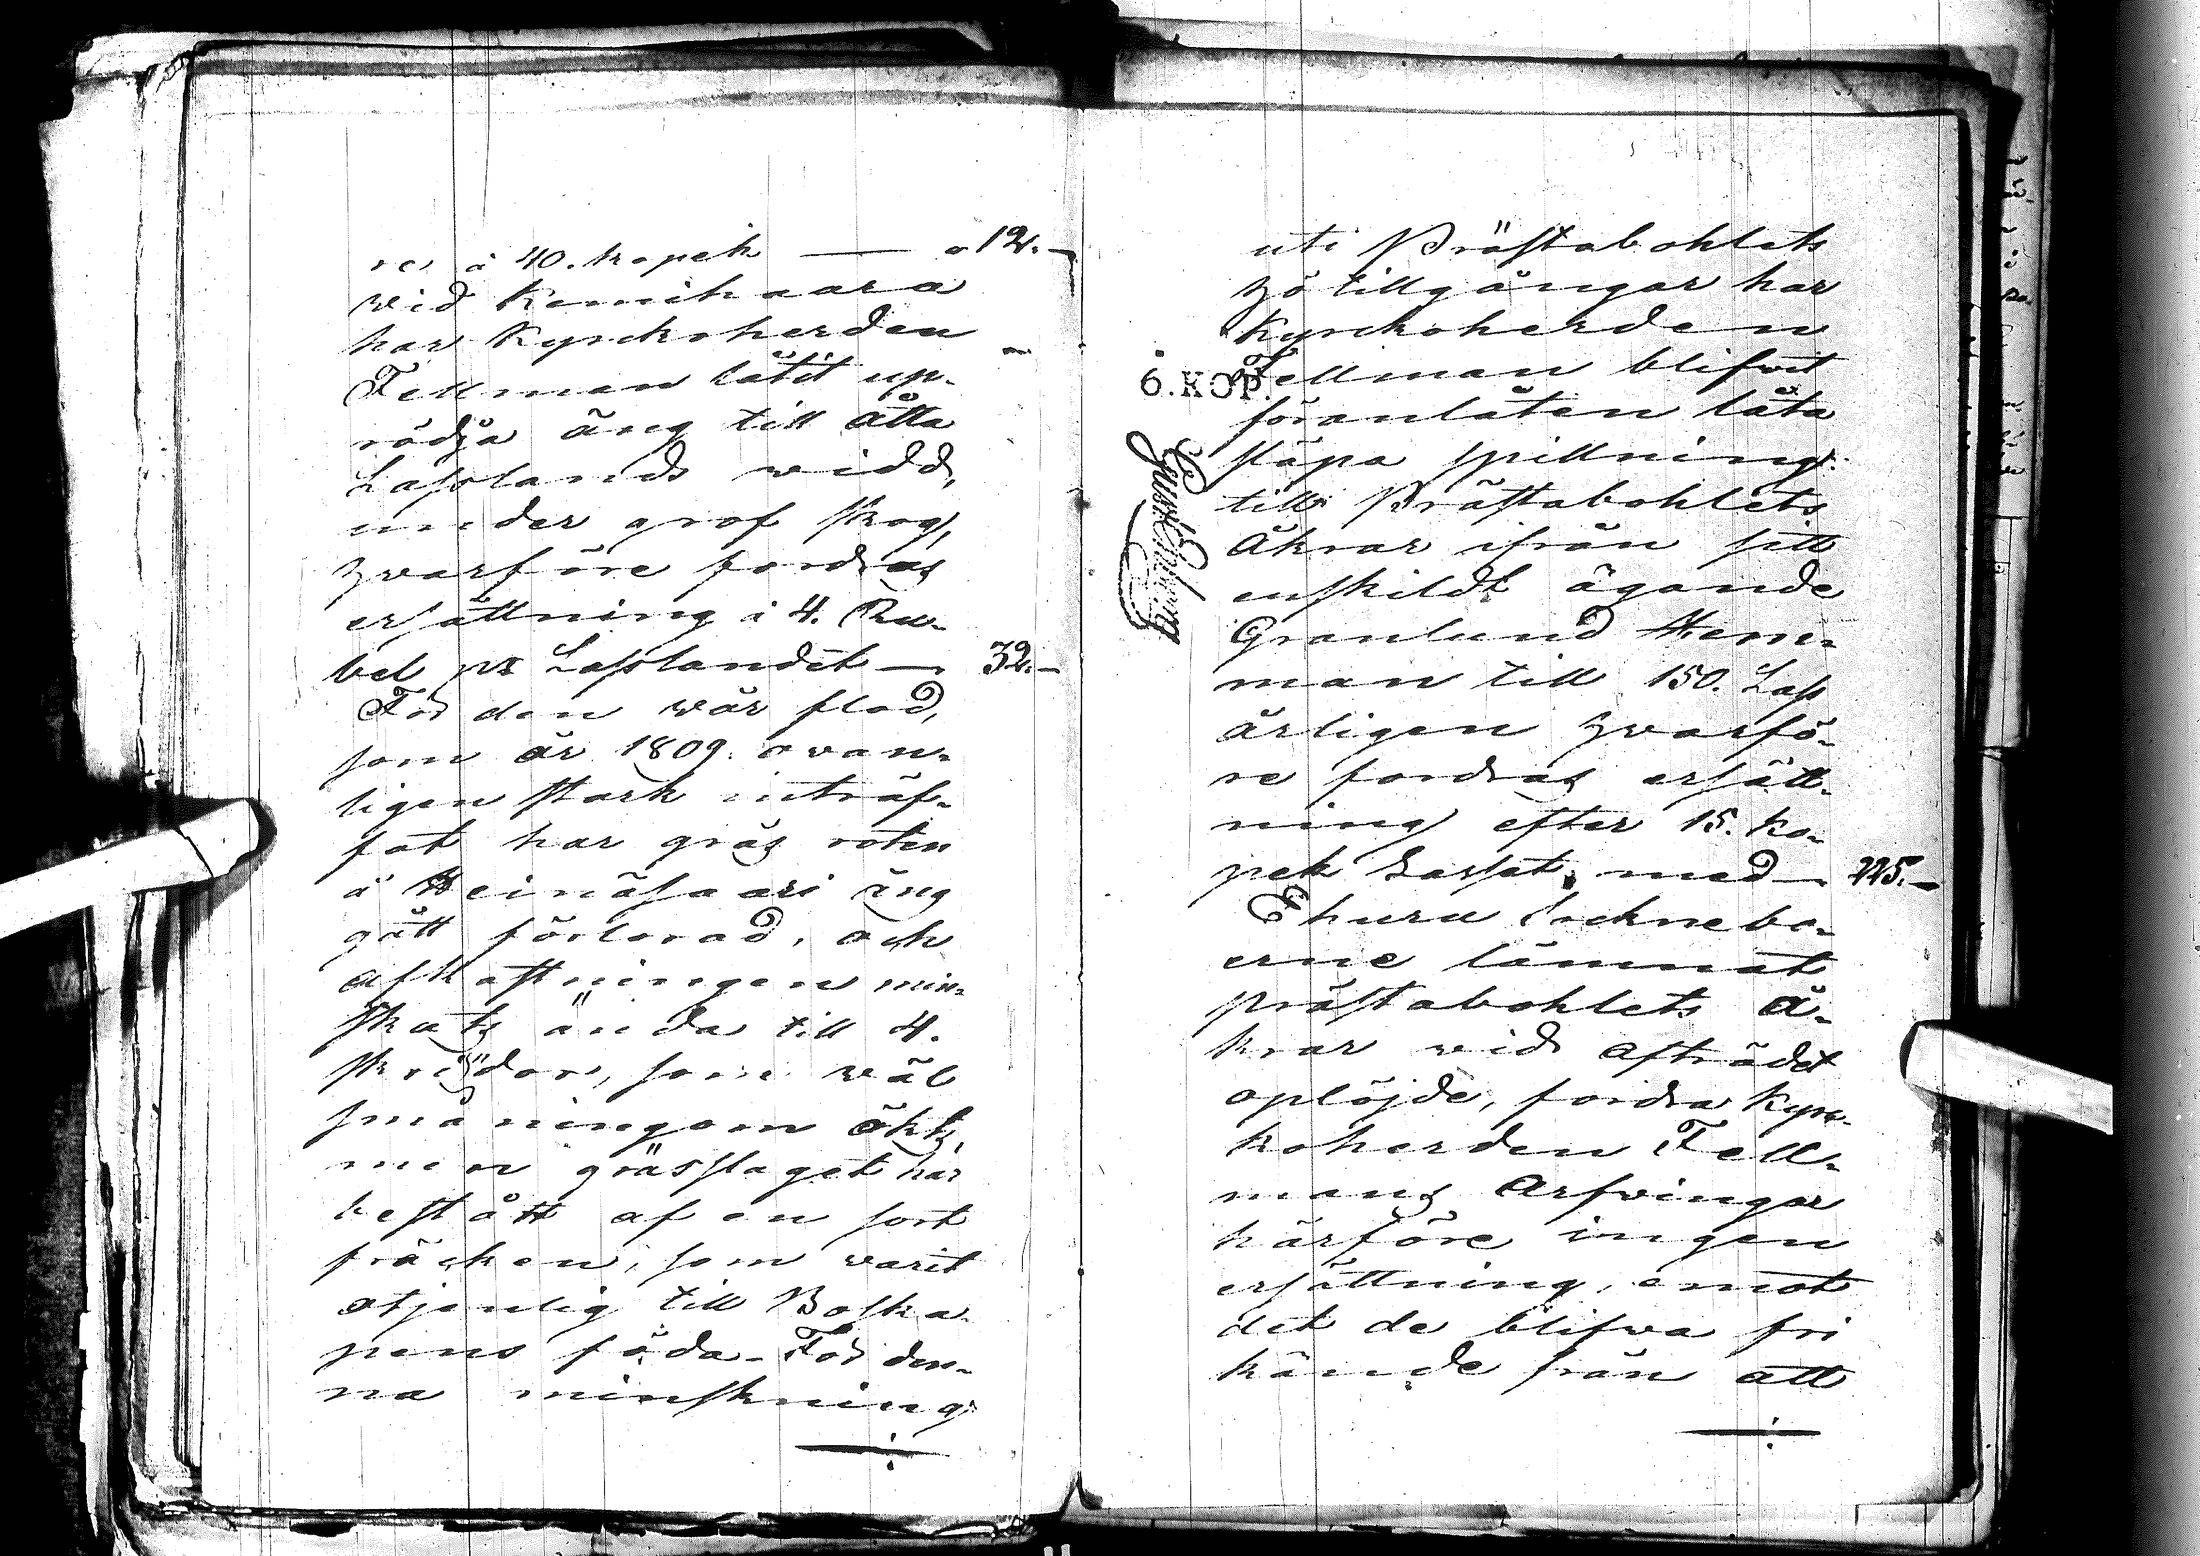 re, à 40. kopek — " 12.—
wid Kemikaara
har Kyrckoherden
Fellman låtit up-
rödja äng till åtta
Lasslands widd,
under grof skog,
hwarföre fordras
ersättning à 4. Ru-
bel pr Lasslandet — 32.—
För den wår flod,
som år 1809. owan-
ligen stark inträf-
fat har gräs roten
å Heinäsaari äng
gått förlorad, och
afkastningen min-
skats ända till 4.
skrÿdor, som wäl
småningom ökts,
men grässlaget har
bestått af en sort
fräcken, som warit
otjenlig till Boska-
pens föda. För den-
na minskning
uti Prästabohlets
hö tillgångar har
Kyrckoherden
Fellman blifwit
föranlåten låta
släpa spillning
till Prästabohlets
Åkrar ifrån sitt
enskildt ägande
Granlund Hem-
man till 150. Lass
årligen hwarfö-
re fordras ersätt-
ning efter 15. ko-
pek Lasset, med — 225.—
Ehuru Sockneboerne lämnat
prästabohlets å-
krar wid afträdet
oplöjde, fordra Kyrc-
koherden Fell-
mans Arfwingar
härföre ingen
ersättning, emot
det de blifwa fri
kände från att
6. KOP.